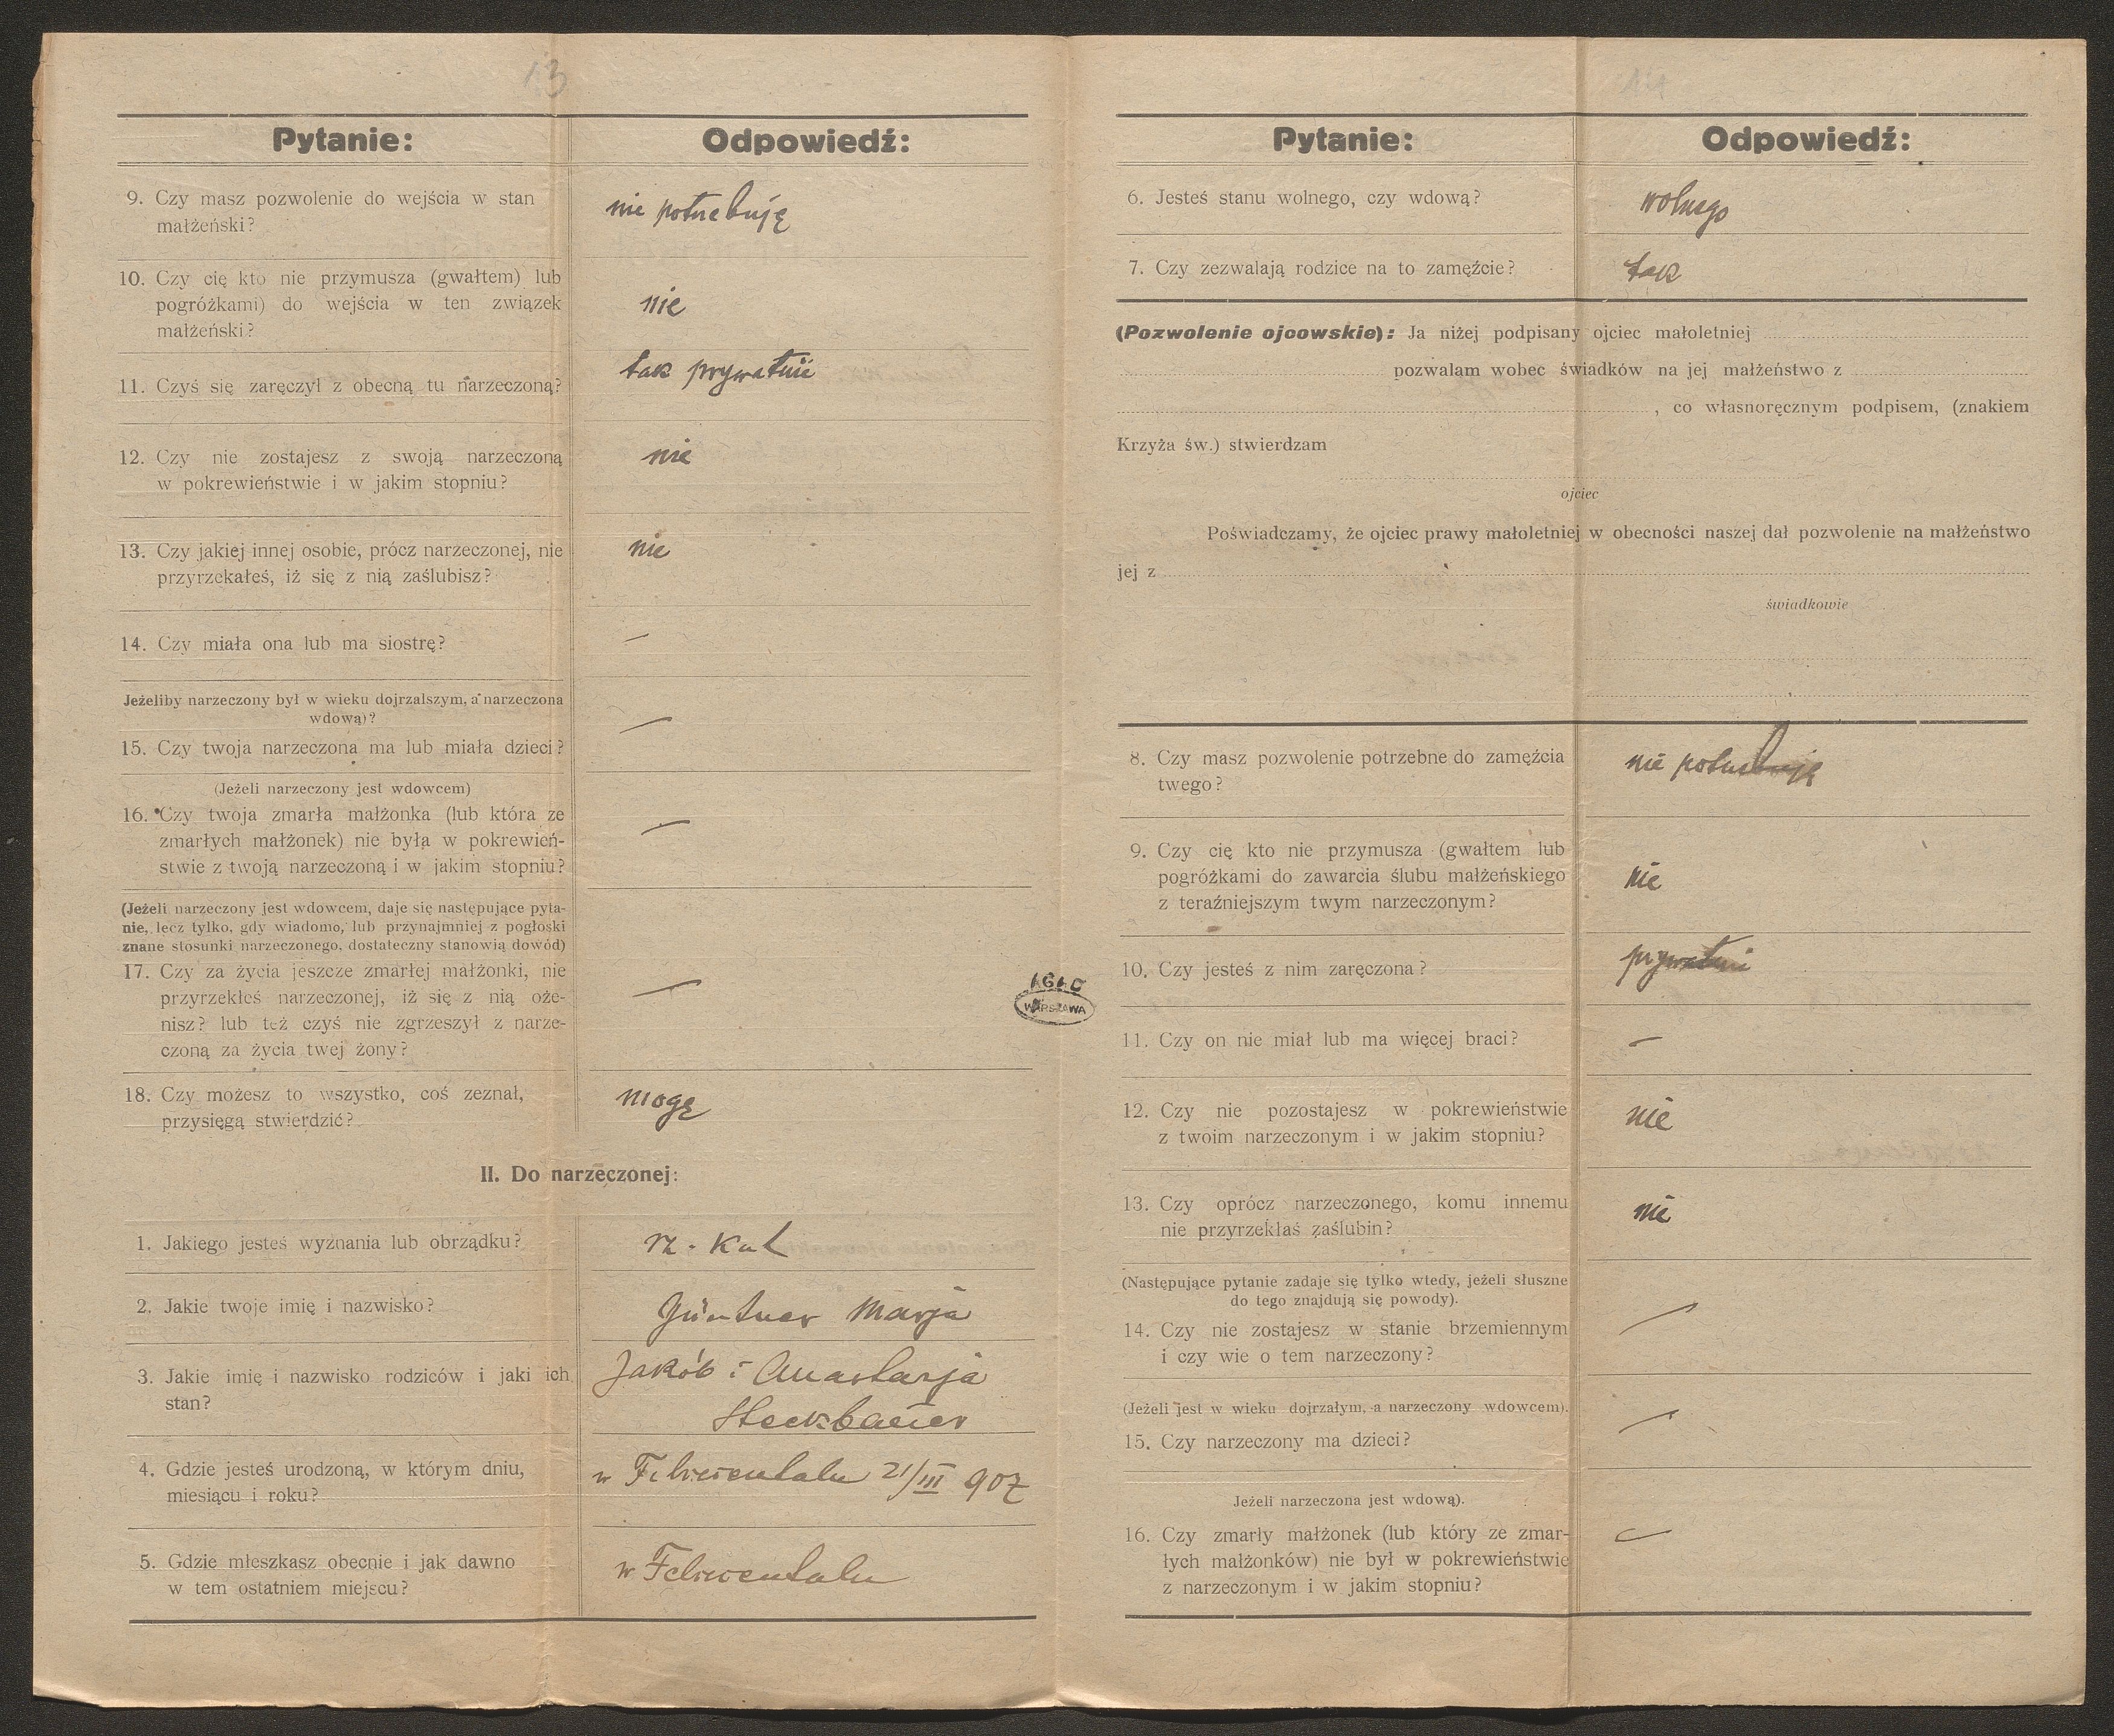 13
Pytanie:
Odpowiedź:
9. Czy masz pozwolenie do wejścia w stan
małżeński?
nie potrzebuję
10. Czy cię kto nie przymusza (gwałtem) lub
pogróżkami) do wejścia w ten związek
małżeński?
nie
11. Czyś się zaręczył z obecną tu narzeczoną?
tak prywatnie
12. Czy nie zostajesz z swoją narzeczoną
w pokrewieństwie i w jakim stopniu?
nie
13. Czy jakiej innej osobie, prócz narzeczonej, nie
przyrzekałeś, iż się z nią zaślubisz?
nie
14. Czy miała ona lub ma siostrę?
—
Jeżeliby narzeczony był w wieku dojrzalszym, a narzeczona
wdową)?
15. Czy twoja narzeczona ma lub miała dzieci?
—
(Jeżeli narzeczony jest wdowcem)
16. Czy twoja zmarła małżonka (lub która ze
zmarłych małżonek) nie była w pokrewień-
stwie z twoją narzeczoną i w jakim stopniu?
—
(Jeżeli narzeczony jest wdowcem, daje się następujące pyta-
nie, lecz tylko, gdy wiadomo, lub przynajmniej z pogłoski
znane stosunki narzeczonego, dostateczny stanowią dowód)
17. Czy za życia jeszcze zmarłej małżonki, nie
przyrzekłeś narzeczonej, iż się z nią oże-
nisz? lub też czyś nie zgrzeszył z narze-
czoną za życia twej żony?
—
18. Czy możesz to wszystko, coś zeznał,
przysięgą stwierdzić?
mogę
II. Do narzeczonej:
1. Jakiego jesteś wyznania lub obrządku?
rz. Kat
2. Jakie twoje imię i nazwisko?
Güntner Marja
3. Jakie imię i nazwisko rodziców i jaki ich
stan?
Jakób i Anastazja
Steckbauer
4. Gdzie jesteś urodzoną, w którym dniu,
miesiącu i roku?
w Felizientalu 21/III 907
5. Gdzie mieszkasz obecnie i jak dawno
w tem ostatniem miejscu?
w Felizientalu
AGAD
WARSZAWA
14
Pytanie:
Odpowiedź:
6. Jesteś stanu wolnego, czy wdową?
wolnego
7. Czy zezwalają rodzice na to zamęźcie?
tak
(Pozwolenie ojcowskie): Ja niżej podpisany ojciec małoletniej
pozwalam wobec świadków na jej małżeństwo z
, co własnoręcznym podpisem, (znakiem
Krzyża św.) stwierdzam
ojciec
Poświadczamy, że ojciec prawy małoletniej w obecności naszej dał pozwolenie na małżeństwo
jej z
świadkowie
8. Czy masz pozwolenie potrzebne do zamęźcia
twego?
nie potrzebuję
9. Czy cię kto nie przymusza (gwałtem lub
pogróżkami do zawarcia ślubu małżeńskiego
z teraźniejszym twym narzeczonym?
nie
10. Czy jesteś z nim zaręczona?
prywatnie
11. Czy on nie miał lub ma więcej braci?
—
12. Czy nie pozostajesz w pokrewieństwie
z twoim narzeczonym i w jakim stopniu?
nie
13. Czy oprócz narzeczonego, komu innemu
nie przyrzekłaś zaślubin?
nie
(Następujące pytanie zadaje się tylko wtedy, jeżeli słuszne
do tego znajdują się powody).
14. Czy nie zostajesz w stanie brzemiennym
i czy wie o tem narzeczony?
—
(Jeżeli jest w wieku dojrzałym, a narzeczony wdowcem).
15. Czy narzeczony ma dzieci?
—
Jeżeli narzeczona jest wdową).
16. Czy zmarły małżonek (lub który ze zmar-
łych małżonków) nie był w pokrewieństwie
z narzeczonym i w jakim stopniu?
—